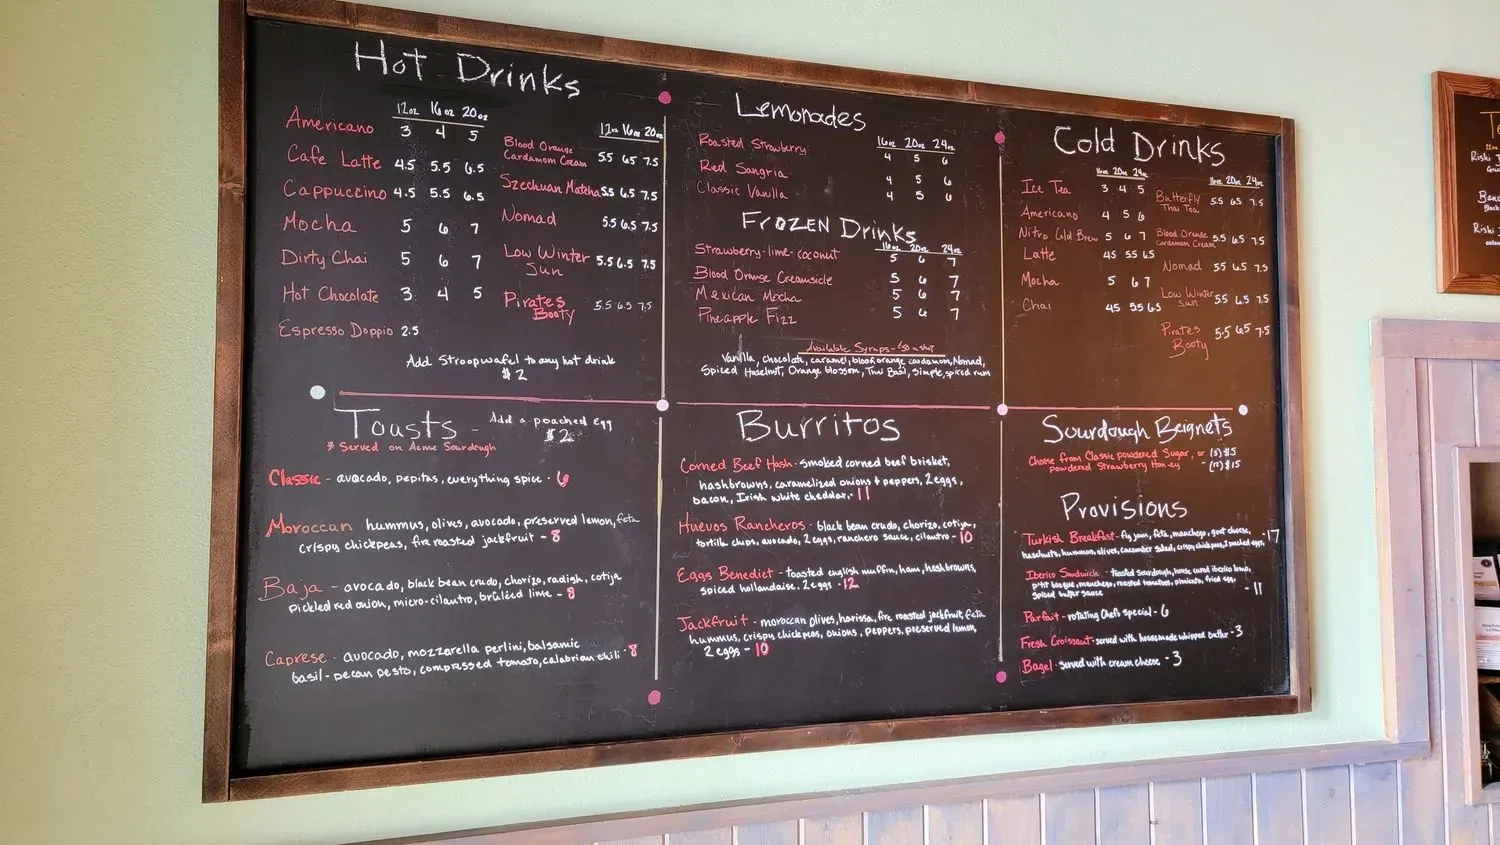 Hot Drinks
12oz 16oz 20oz
Americano 3 4 5
Cafe Latte 4.5 5.5 6.5
Cappuccino 4.5 5.5 6.5
Mocha 5 6 7
Dirty Chai 5 6 7
Hot Chocolate 3 4 5
Espresso Doppio 2.5
12oz 16oz 20oz
Blood Orange
Cardamom Cream 5.5 6.5 7.5
Szechuan Matcha 5.5 6.5 7.5
Nomad 5.5 6.5 7.5
Low Winter
Sun 5.5 6.5 7.5
Pirates
Booty 5.5 6.5 7.5
Add Stroopwafel to any hot drink
$2
Lemonades
16oz 20oz 24oz
Roasted Strawberry 4 5 6
Red Sangria 4 5 6
Classic Vanilla 4 5 6
FROZEN Drinks
16oz 20oz 24oz
Strawberry-lime-coconut 5 6 7
Blood Orange Creamsicle 5 6 7
Mexican Mocha 5 6 7
Pineapple Fizz 5 6 7
Available Syrups - .60 a shot
Vanilla, chocolate, caramel, blood orange cardamom, Nomad,
Spiced Hazelnut, Orange blossom, Thai Basil, Simple, spiced rum
Cold Drinks
16oz 20oz 24oz
Ice Tea 3 4 5
Americano 4 5 6
Nitro Cold Brew 5 6 7
Latte 4.5 5.5 6.5
Mocha 5 6 7
Chai 4.5 5.5 6.5
16oz 20oz 24oz
Butterfly
Thai Tea 5.5 6.5 7.5
Blood Orange
Cardamom Cream 5.5 6.5 7.5
Nomad 5.5 6.5 7.5
Low Winter
Sun 5.5 6.5 7.5
Pirates
Booty 5.5 6.5 7.5
Toasts - Add a poached egg
$2
* Served on Acme Sourdough
Classic - avocado, pepitas, everything spice - 6
Moroccan hummus, olives, avocado, preserved lemon, feta
crispy chickpeas, fire roasted jackfruit - 8
Baja - avocado, black bean crudo, chorizo, radish, cotija
pickled red onion, micro-cilantro, brûléed lime - 8
Caprese - avocado, mozzarella perlini, balsamic
basil-pecan pesto, compressed tomato, calabrian chili - 8
Burritos
Corned Beef Hash - smoked corned beef brisket,
hashbrowns, caramelized onions & peppers, 2 eggs,
bacon, Irish white cheddar - 11
Huevos Rancheros - black bean crudo, chorizo, cotija,
tortilla chips, avocado, 2 eggs, ranchero sauce, cilantro - 10
Eggs Benedict - toasted english muffin, ham, hashbrowns,
spiced hollandaise, 2 eggs - 12
Jackfruit - moroccan olives, harissa, fire roasted jackfruit, feta
hummus, crispy chickpeas, onions, peppers, preserved lemon,
2 eggs - 10
Sourdough Beignets
Choose from Classic powdered Sugar, or
powdered Strawberry Honey - (12) $15
Provisions
Turkish Breakfast - fig jam, feta, manchego, goat cheese,
hazelnuts, hummus, olives, cucumber salad, crispy chickpeas, 2 poached eggs, - 17
Iberico Sandwich - toasted sourdough, house cured iberico lomo,
manchego, roasted tomatoes, pimienta, fried egg,
spiced butter sauce - 11
Parfait - rotating Chefs special - 6
Fresh Croissant - served with housemade whipped butter - 3
Bagel - served with cream cheese - 3